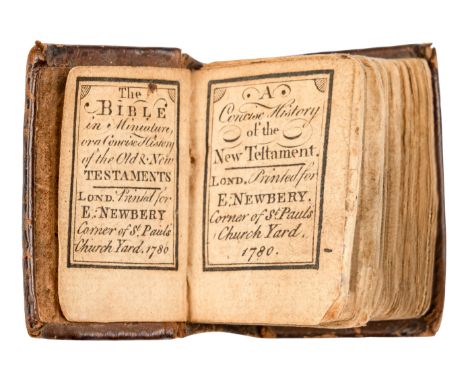 The
BIBLE
in Miniature,
or a Concise History
of the Old & New
TESTAMENTS
LOND. Printed for
E. NEWBERY
Corner of St. Pauls
Church Yard. 1780
A
Concise History
of the
New Testament.
LOND. Printed for
E. NEWBERY.
Corner of St. Pauls
Church Yard.
1780.